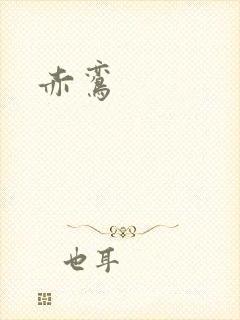 赤鸾
也耳